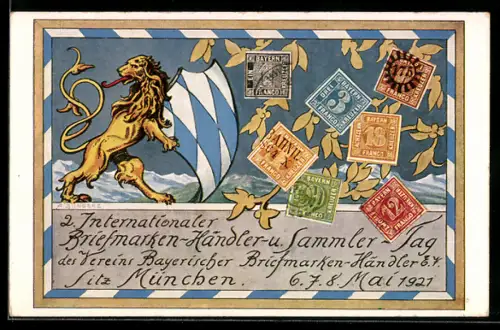 BAYERN
FRANCO
DREI
BAYERN
3
FRANCO
KREUZER
175
BAYERN
18
KREUZER
FRANCO
BAYERN
12
2. Internationaler
Briefmarken-Händler-u. Sammler-Tag
des Vereins Bayerischer Briefmarken-Händler E.V.
Sitz München. 6. 7. 8. Mai 1921